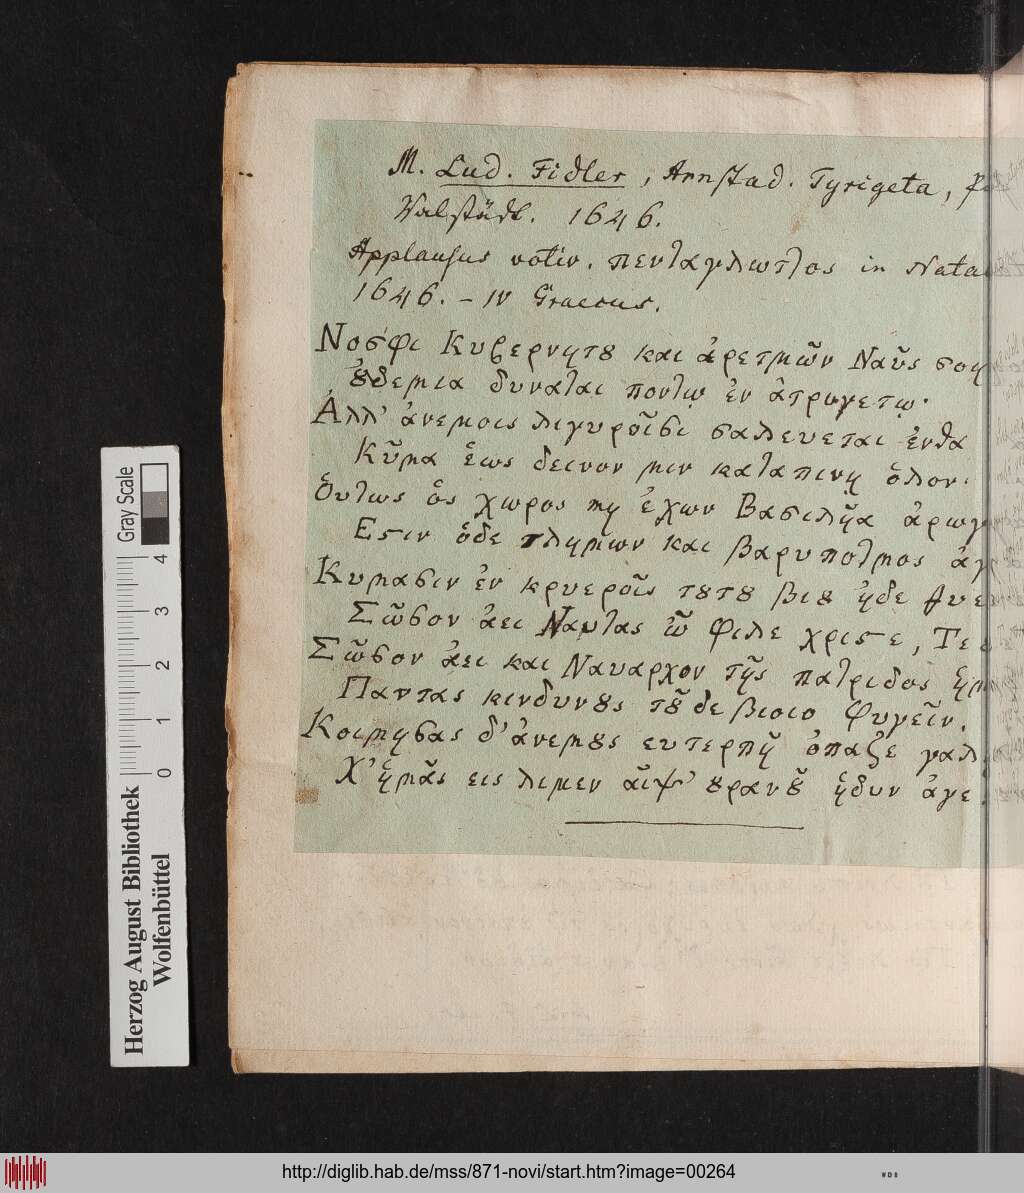 M. Lud. Fidler, Arnstad. Tyrigeta,
Walstädt. 1646.
Applausus votiv. πενταγλωττος in Nata
1646. – IV Graecus.
Νοσφι Κυβερνητȣ και ἀρετμῶν Ναῦς
ȣ̓δεμια δυναται ποντῳ ἐν ἀτρυγετῳ·
Ἀλλ' ἀνεμοις λιγυροῖσι σαλευεται ἐνθα
Κῦμα ἑως δεινον μιν καταπινῃ ὁλον·
Ὁυτως ὁς χωρος μη ἐχων Βασιλῆα ἀρωγ
Εϛιν ὁδε τλημων και βαρυποτμος ἀγ
Κυμασιν ἐν κρυεροῖς τȣτȣ βιȣ ἠδε
Σῶσον ἀει Ναυτας ὦ φιλε χριϛε,
Σῶσον ἀει και Ναυαρχον τῆς πατριδος ἡμ
Παντας κινδυνȣς τȣ͂δε βιοιο φυγεῖν.
Κοιμησας δ' ἀνεμȣς ευτερπῆ ὀπαζε γαλ
Χ' ἡμᾶς εις λιμεν' αἶψ' ȣρανȣ͂ ἡδυν ἀγε.
Gray Scale
4
3
2
1
0
Herzog August Bibliothek
Wolfenbüttel
http://diglib.hab.de/mss/871-novi/start.htm?image=00264